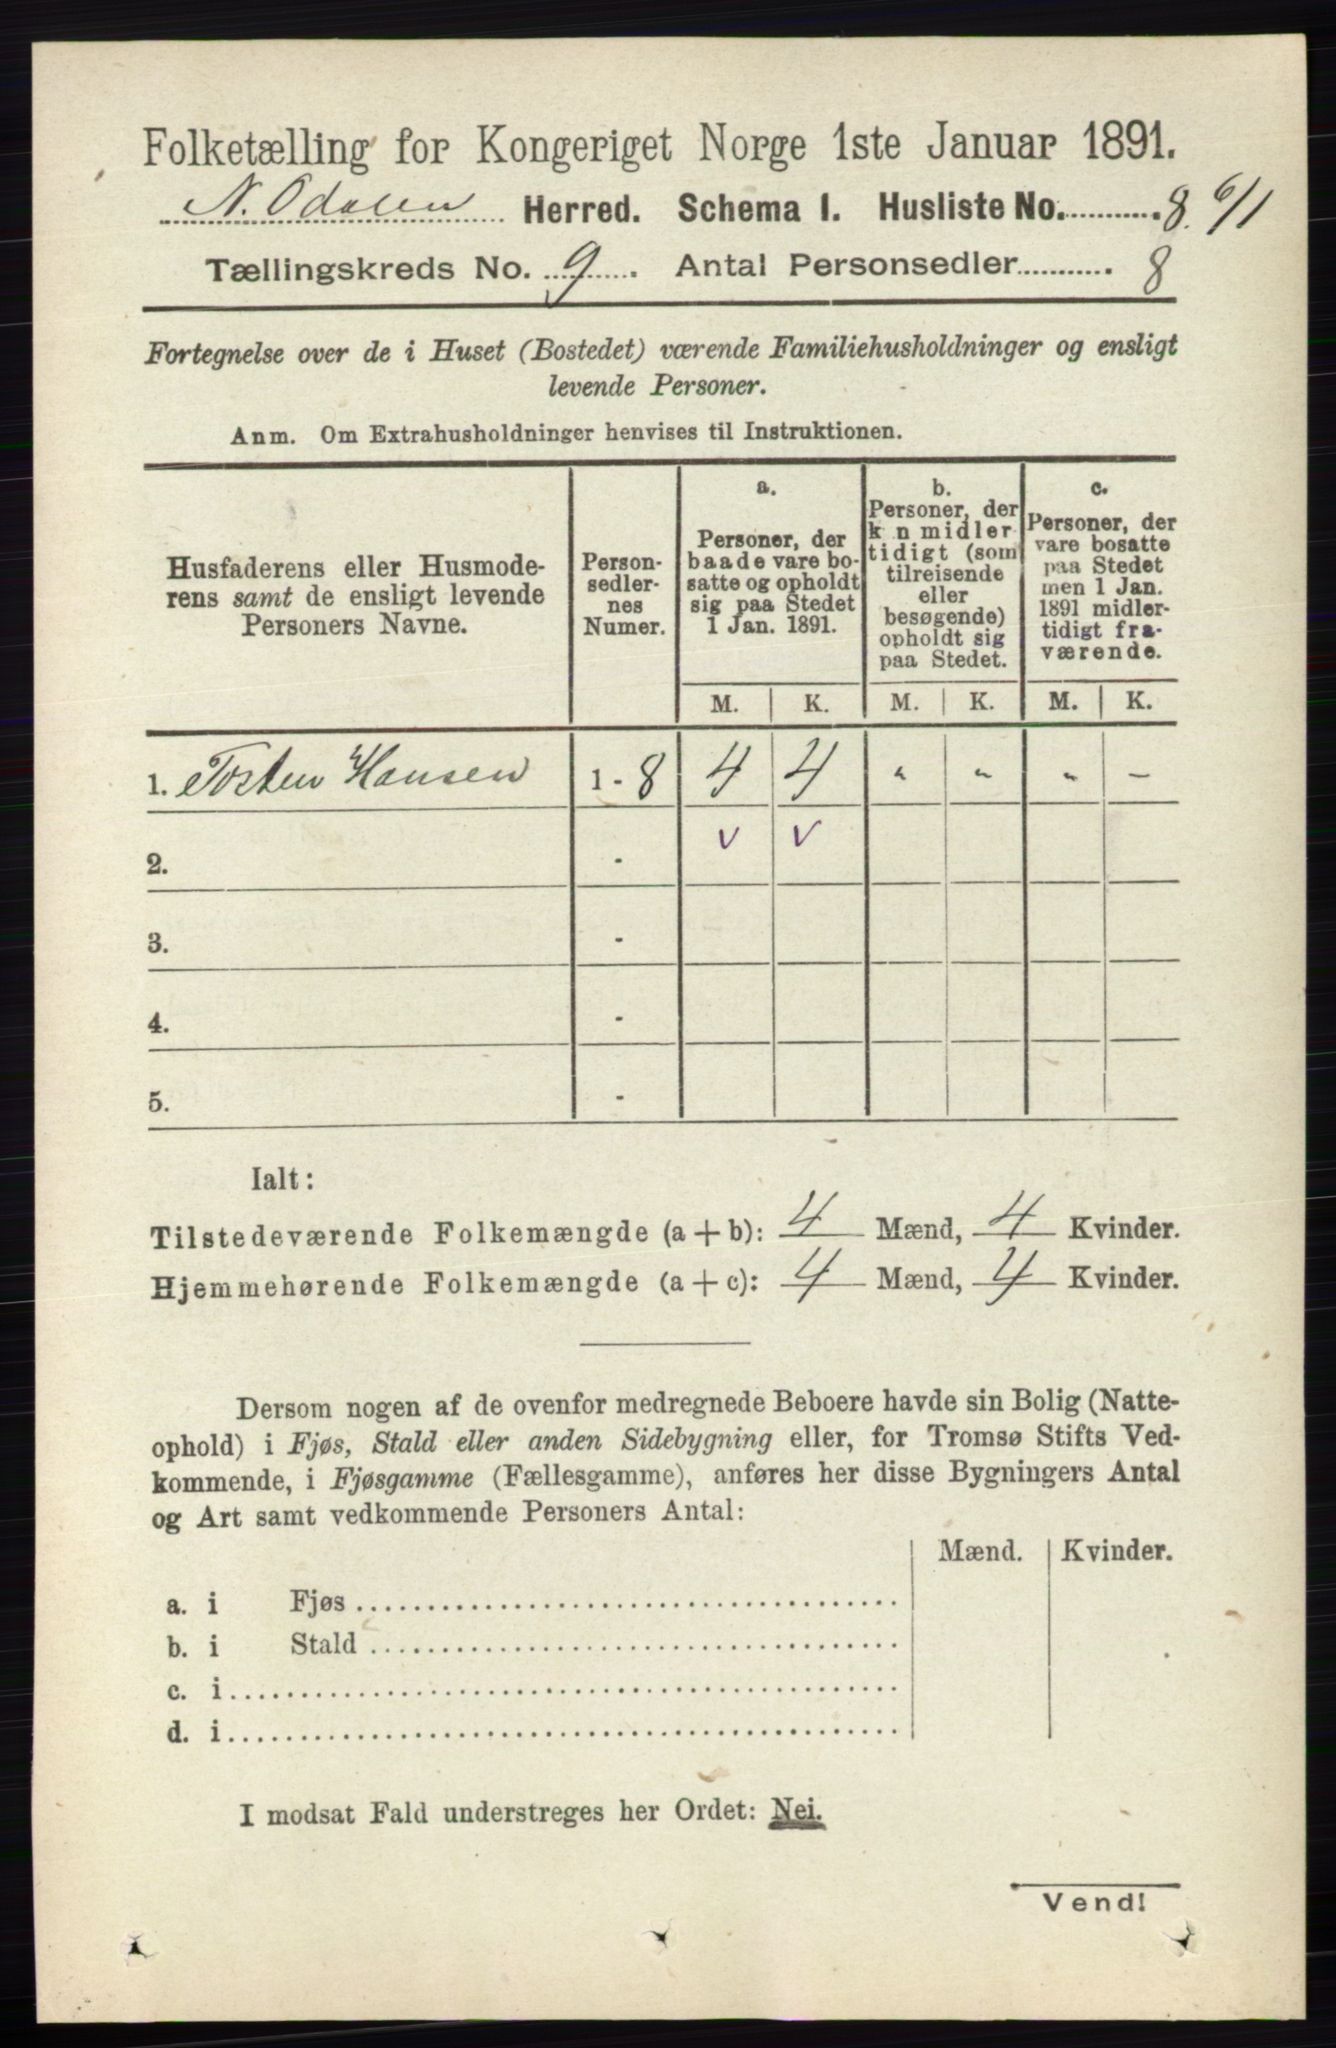 Folketælling for Kongeriget Norge 1ste Januar 1891.
N. Odalen Herred. Schema I. Husliste No. 8. 6/1
Tællingskreds No. 9. Antal Personsedler 8
Fortegnelse over de i Huset (Bostedet) værende Familiehusholdninger og ensligt
levende Personer.
Anm. Om Extrahusholdninger henvises til Instruktionen.
Husfaderens eller Husmode-
rens samt de ensligt levende
Personers Navne.
Person-
sedler-
nes
Numer.
a.
Personer, der
baade vare bo-
satte og opholdt
sig paa Stedet
1 Jan. 1891.
b.
Personer, der
k n midler
tidigt (som
tilreisende
eller
besøgende)
opholdt sig
paa Stedet.
c.
Personer, der
vare bosatte
paa Stedet
men 1 Jan.
1891 midler-
tidigt fra-
værende.
M. K. M. K. M. K.
1. Tosten Hansen 1 - 8 4 4 " " " –
2. - v v
3. -
4. -
5. -
Ialt:
Tilstedeværende Folkemængde (a + b): 4 Mænd, 4 Kvinder.
Hjemmehørende Folkemængde (a + c): 4 Mænd, 4 Kvinder.
Dersom nogen af de ovenfor medregnede Beboere havde sin Bolig (Natte-
ophold) i Fjøs, Stald eller anden Sidebygning eller, for Tromsø Stifts Ved-
kommende, i Fjøsgamme (Fællesgamme), anføres her disse Bygningers Antal
og Art samt vedkommende Personers Antal:
Mænd. Kvinder.
a. i Fjøs
b. i Stald
c. i
d. i
I modsat Fald understreges her Ordet: Nei.
Vend!